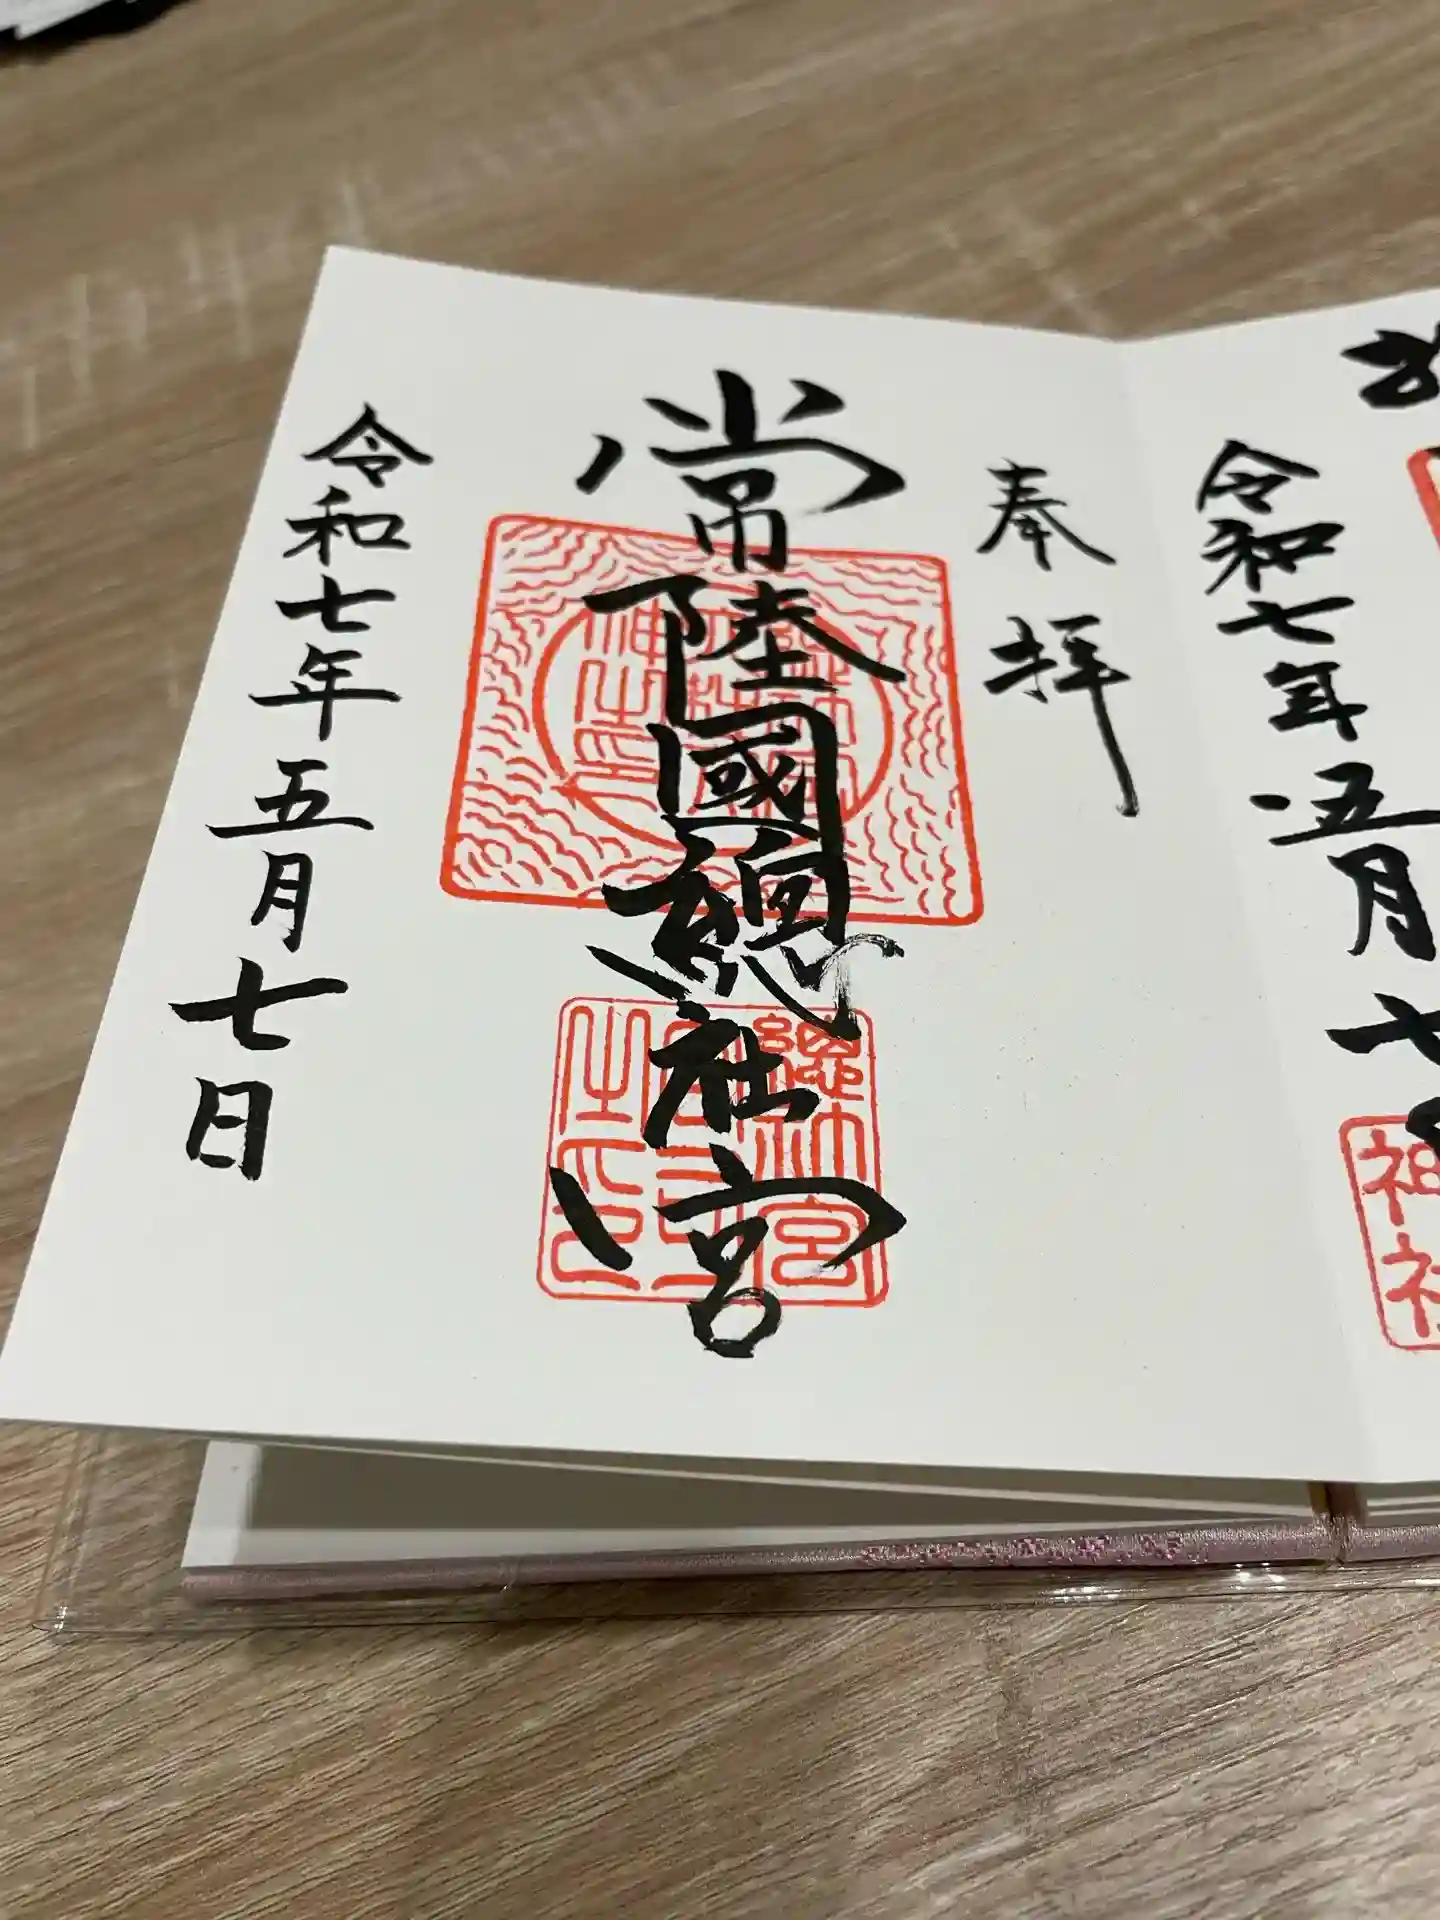 令和七年五月七
神社
奉拝
常陸國總社宮
總社宮
之印
令和七年五月七日